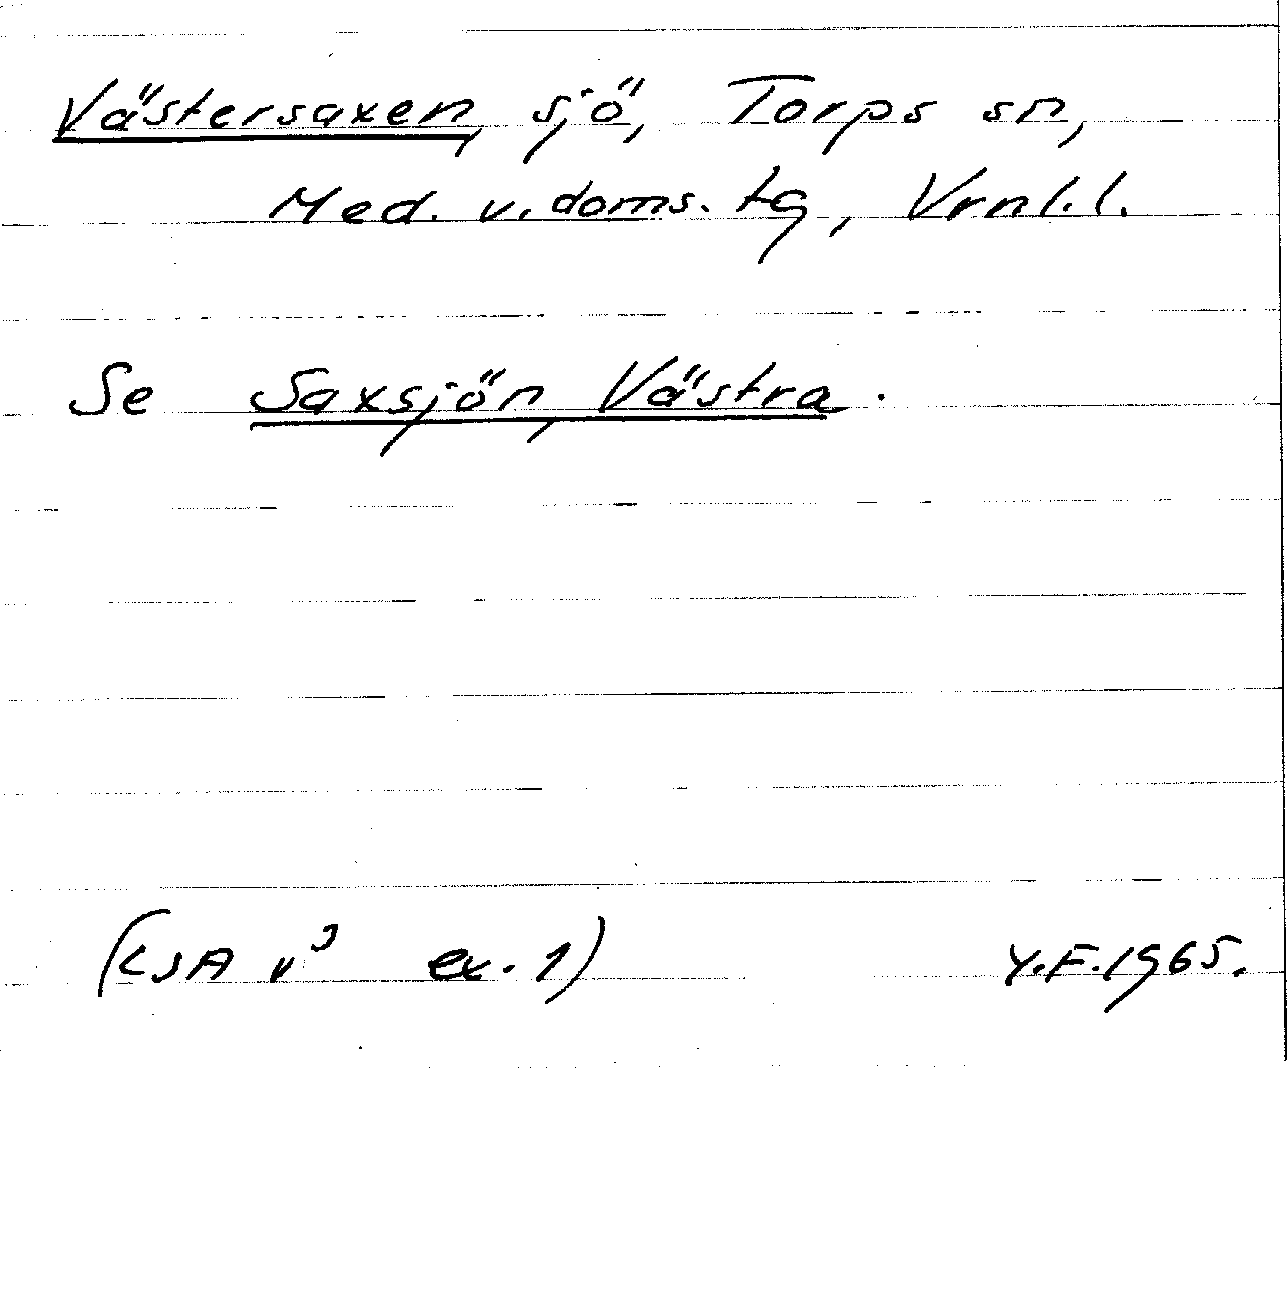 Västersaxen, sjö, Torps sn,
Med. v. doms. tg, Vrnl. l.
Se Saxsjön, Västra.
(LSA v³ ex. 1) Y.F. 1965.